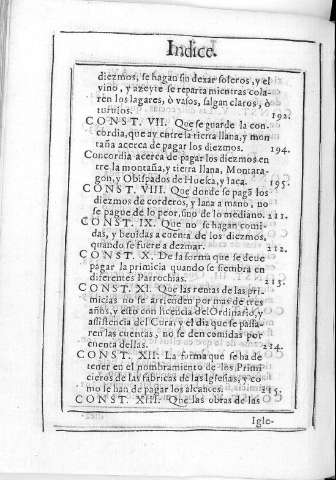 Indice.
diezmos, se hagan sin dexar soleros, y el
vino, y azeyte se reparta mientras cola-
ren los lagares, ò vasos, salgan claros, ò
turuios. 192.
CONST. VII. Que se guarde la con-
cordia, que ay entre la tierra llana, y mon
taña acerca de pagar los diezmos. 194.
Concordia acerca de pagar los diezmos en
tre la montaña, y tierra llana, Montara-
gon, y Obispados de Huesca, y Iaca. 195.
CONST. VIII. Que donde se pagã los
diezmos de corderos, y lana a mano, no
se pague de lo peor, sino de lo mediano. 211.
CONST. IX. Que no se hagan comi-
das, y beuidas a cuenta de los diezmos,
quando se fuere a dezmar. 212.
CONST. X. De la forma que se deue
pagar la primicia quando se siembra en
diferentes Parrochias. 213.
CONST. XI. Que las rentas de las pri-
micias no se arrienden por mas de tres
años, y esto con licencia del Ordinario, y
assistencia del Cura, y el dia que se passa-
ren las cuentas, no se den comidas por
cuenta dellas. 214.
CONST. XII. La forma que se ha de
tener en el nombramiento de los Primi
cieros de las fabricas de las Iglesias, y co
mo se han de pagar los alcances. 215.
CONST. XIII. Que las obras de las
Igle-